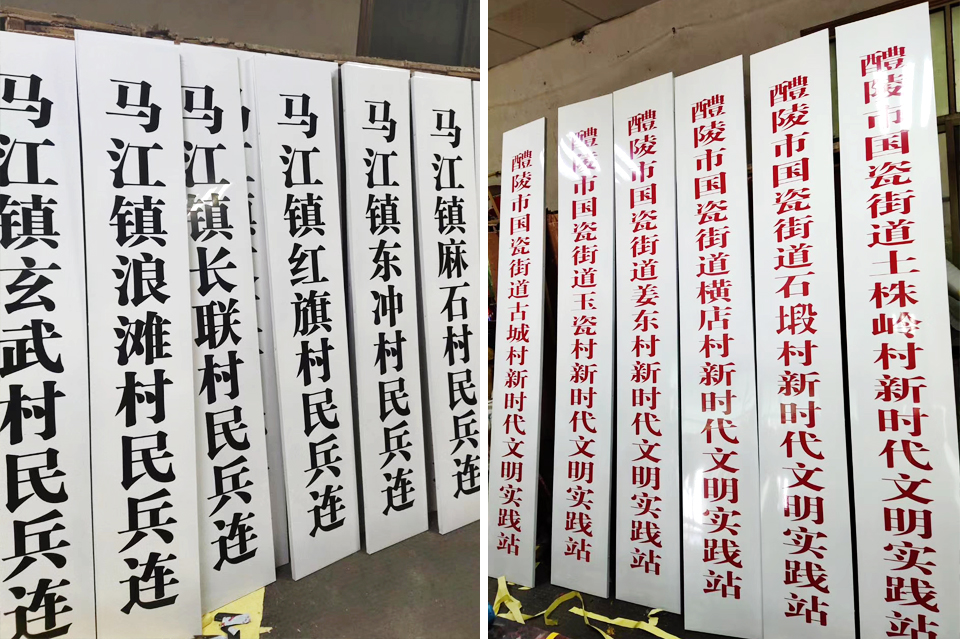 马江镇玄武村民兵连
马江镇浪滩村民兵连
马江镇长联村民兵连
马江镇
马江镇红旗村民兵连
马江镇东冲村民兵连
马江镇麻石村民兵连
醴陵市国瓷街道古城村新时代文明实践站
醴陵市国瓷街道玉瓷村新时代文明实践站
醴陵市国瓷街道姜东村新时代文明实践站
醴陵市国瓷街道横店村新时代文明实践站
醴陵市国瓷街道石塅村新时代文明实践站
醴陵市国瓷街道土株岭村新时代文明实践站